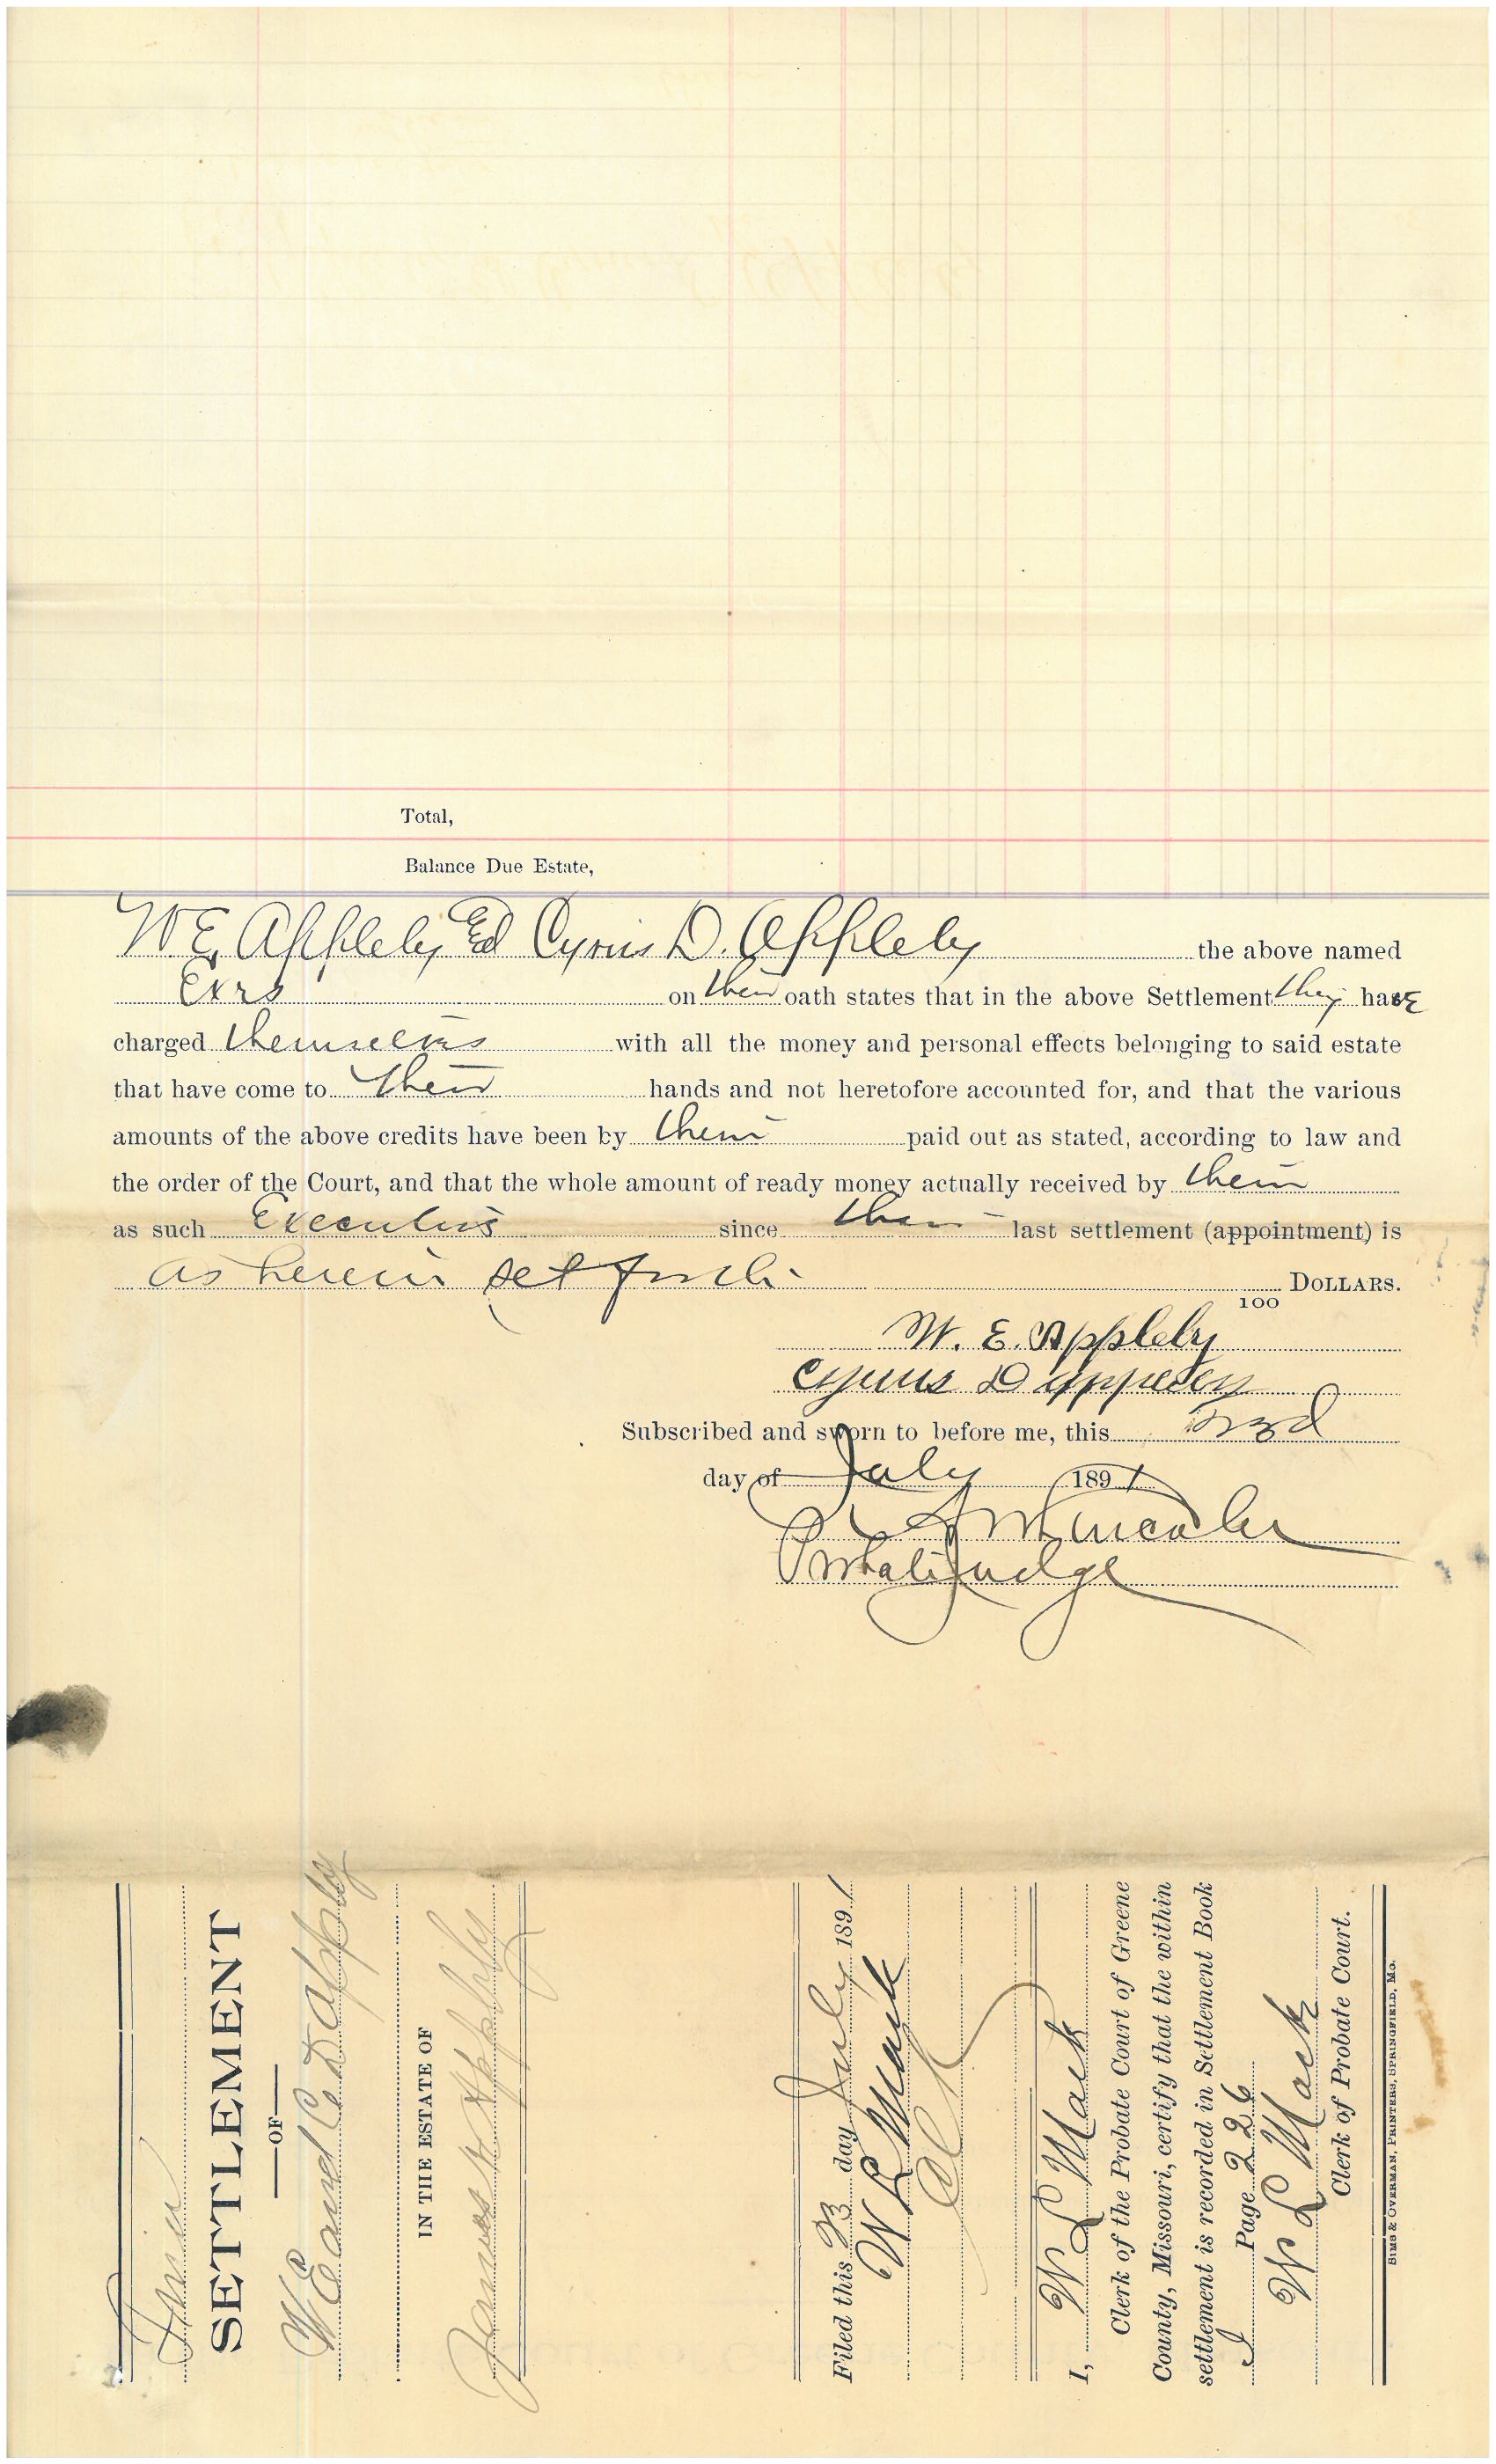 Total,
Balance Due Estate,
W E. Appleby Ed Cyrus D. Appleby the above named
Exrs on their oath states that in the above Settlement they have
charged themselves with all the money and personal effects belonging to said estate
that have come to their hands and not heretofore accounted for, and that the various
amounts of the above credits have been by them paid out as stated, according to law and
the order of the Court, and that the whole amount of ready money actually received by them
as such Executors since their last settlement (appointment) is
as herein set forth DOLLARS.
100
W. E. Appleby
Cyrus D Appleby
Subscribed and sworn to before me, this 23d
day of July 1891
Probate Judge
SETTLEMENT
OF
W E and C. D Appleby
IN THE ESTATE OF
James H Appleby
Filed this 23 day July 1891
W L Mack
Clk
I, W L Mack
Clerk of the Probate Court of Greene
County, Missouri, certify that the within
settlement is recorded in Settlement Book
I Page 226
W L Mack
Clerk of Probate Court.
SIMS & OVERMAN, PRINTERS, SPRINGFIELD, MO.